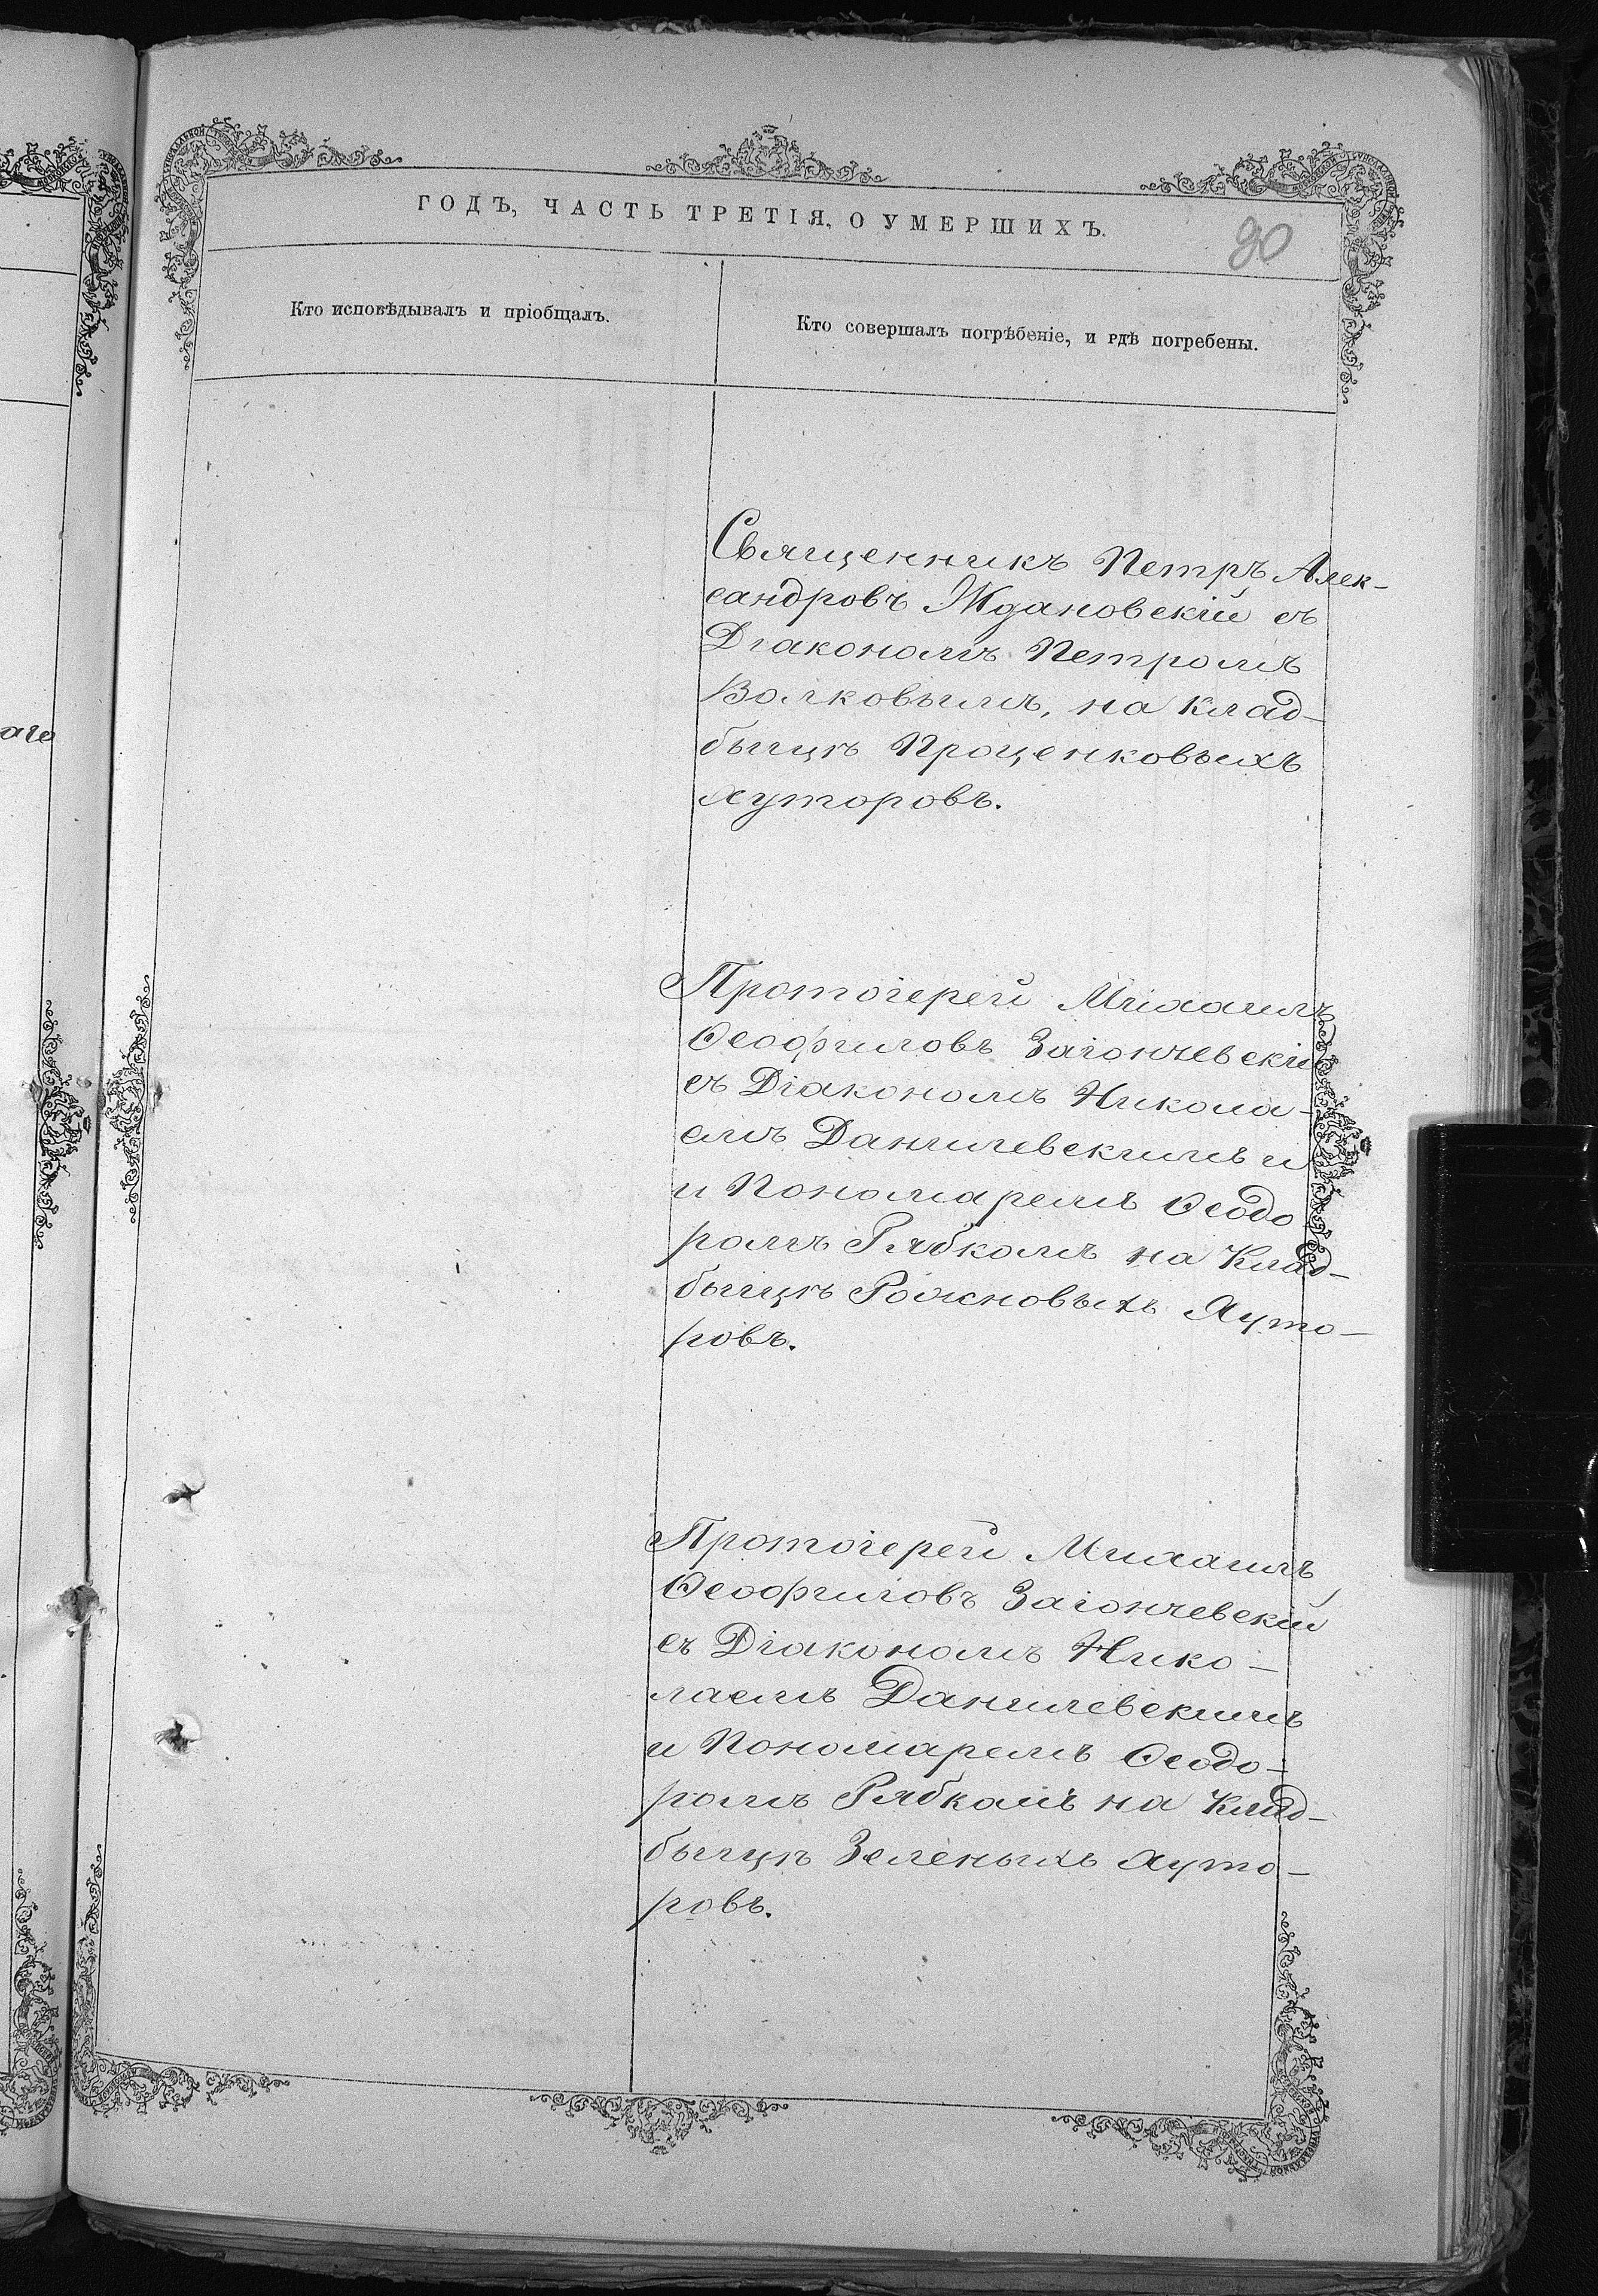 ГОДЪ, ЧАСТЬ ТРЕТІЯ, О УМЕРШИХЪ.
90
Кто исповѣдывалъ и пріобщалъ.
Кто совершалъ погрѣбеніе, и гдѣ погребены.
аго
Священникъ Петръ Алек-
сандровъ Ждановскій съ
Діакономъ Петромъ
Волковымъ, на клад-
быщѣ Проценковыхъ
хуторовъ.
Протоіерей Михаилъ
Ѳеофиловъ Загончевскій
съ Діакономъ Никола-
емъ Данилевскимъ и
и Пономаремъ Ѳеодо-
ромъ Рябкомъ на Клад-
быщѣ Рожновыхъ Хуто-
ровъ.
Протоіерей Михаилъ
Ѳеофиловъ Загончевскій
съ Діакономъ Нико-
лаемъ Данилевскимъ
и Пономаремъ Ѳеодо-
ромъ Рябкомъ на Клад-
быщѣ Зеленыхъ Хуто-
ровъ.